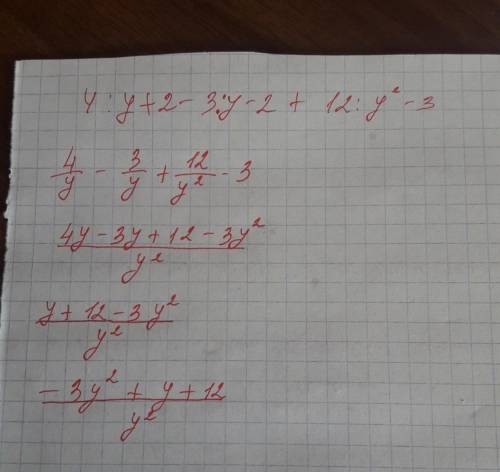 4 : y + 2 - 3 : y - 2 + 12 : y² - 3
4/y - 3/y + 12/y² - 3
(4y - 3y + 12 - 3y²)/y²
(y + 12 - 3y²)/y²
(-3y² + y + 12)/y²